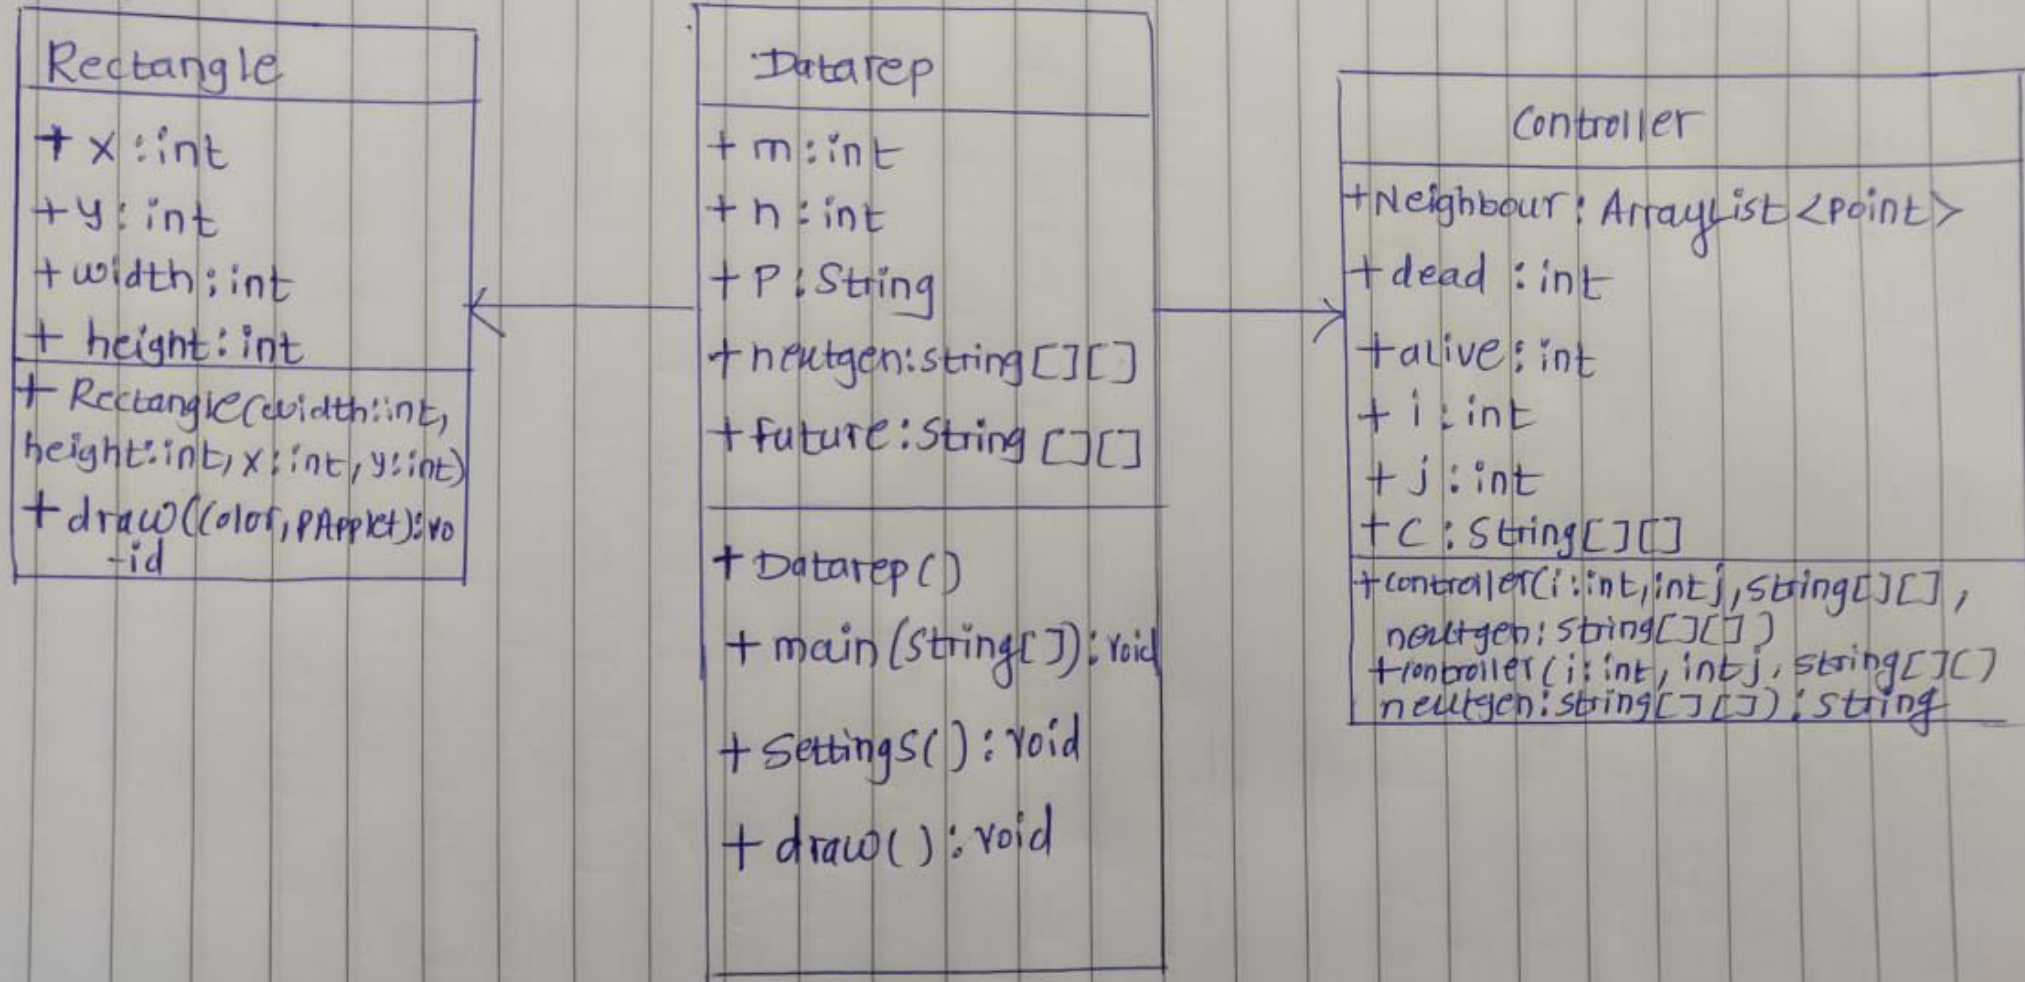 Rectangle
+ x : int
+ y : int
+ width : int
+ height : int
+ Rectangle(width:int,
height:int, x:int, y:int)
+ draw(Color, PApplet):vo
-id
Datarep
+ m : int
+ n : int
+ P : String
+ nextgen:string[][]
+ future:String [][]
+ Datarep()
+ main(String[]):void
+ Settings() : void
+ draw() : void
Controller
+Neighbour : ArrayList <point>
+ dead : int
+ alive : int
+ i : int
+ j : int
+ C : String[][]
+controller(i:int,int j,string[][],
nextgen:string[][])
+controller(i:int, int j, string[][]
nextgen:string[][]):string